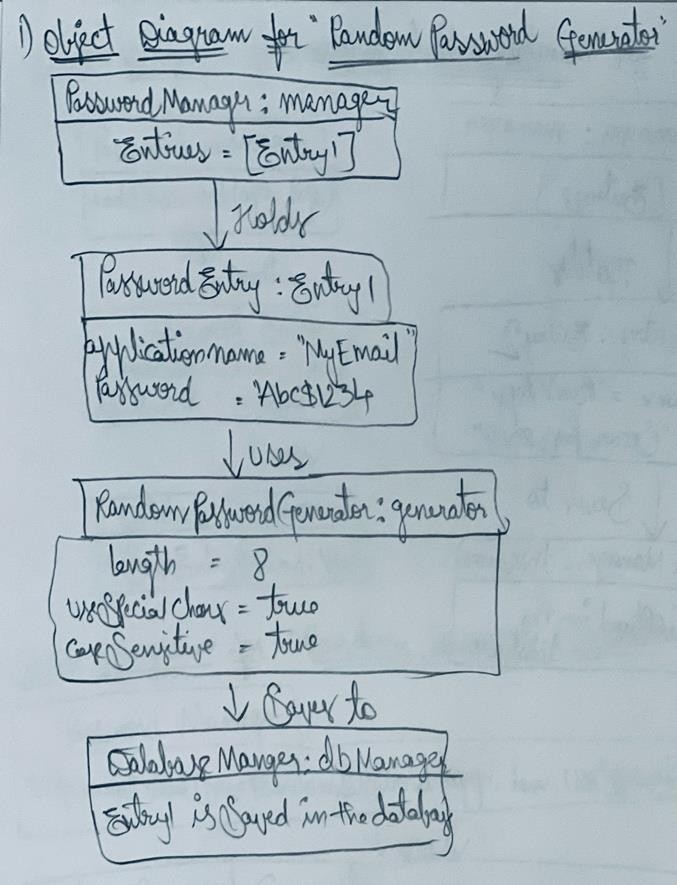 1) Object Diagram for "Random Password Generator"
PasswordManager : manager
Entries = [Entry1]
Holds
PasswordEntry : Entry1
applicationname = "MyEmail"
Password = "Abc$1234
uses
RandomPasswordGenerator : generator
length = 8
useSpecial Chars = true
caseSensitive = true
Saves to
Database Manger : dbManager
Entry1 is Saved in the database